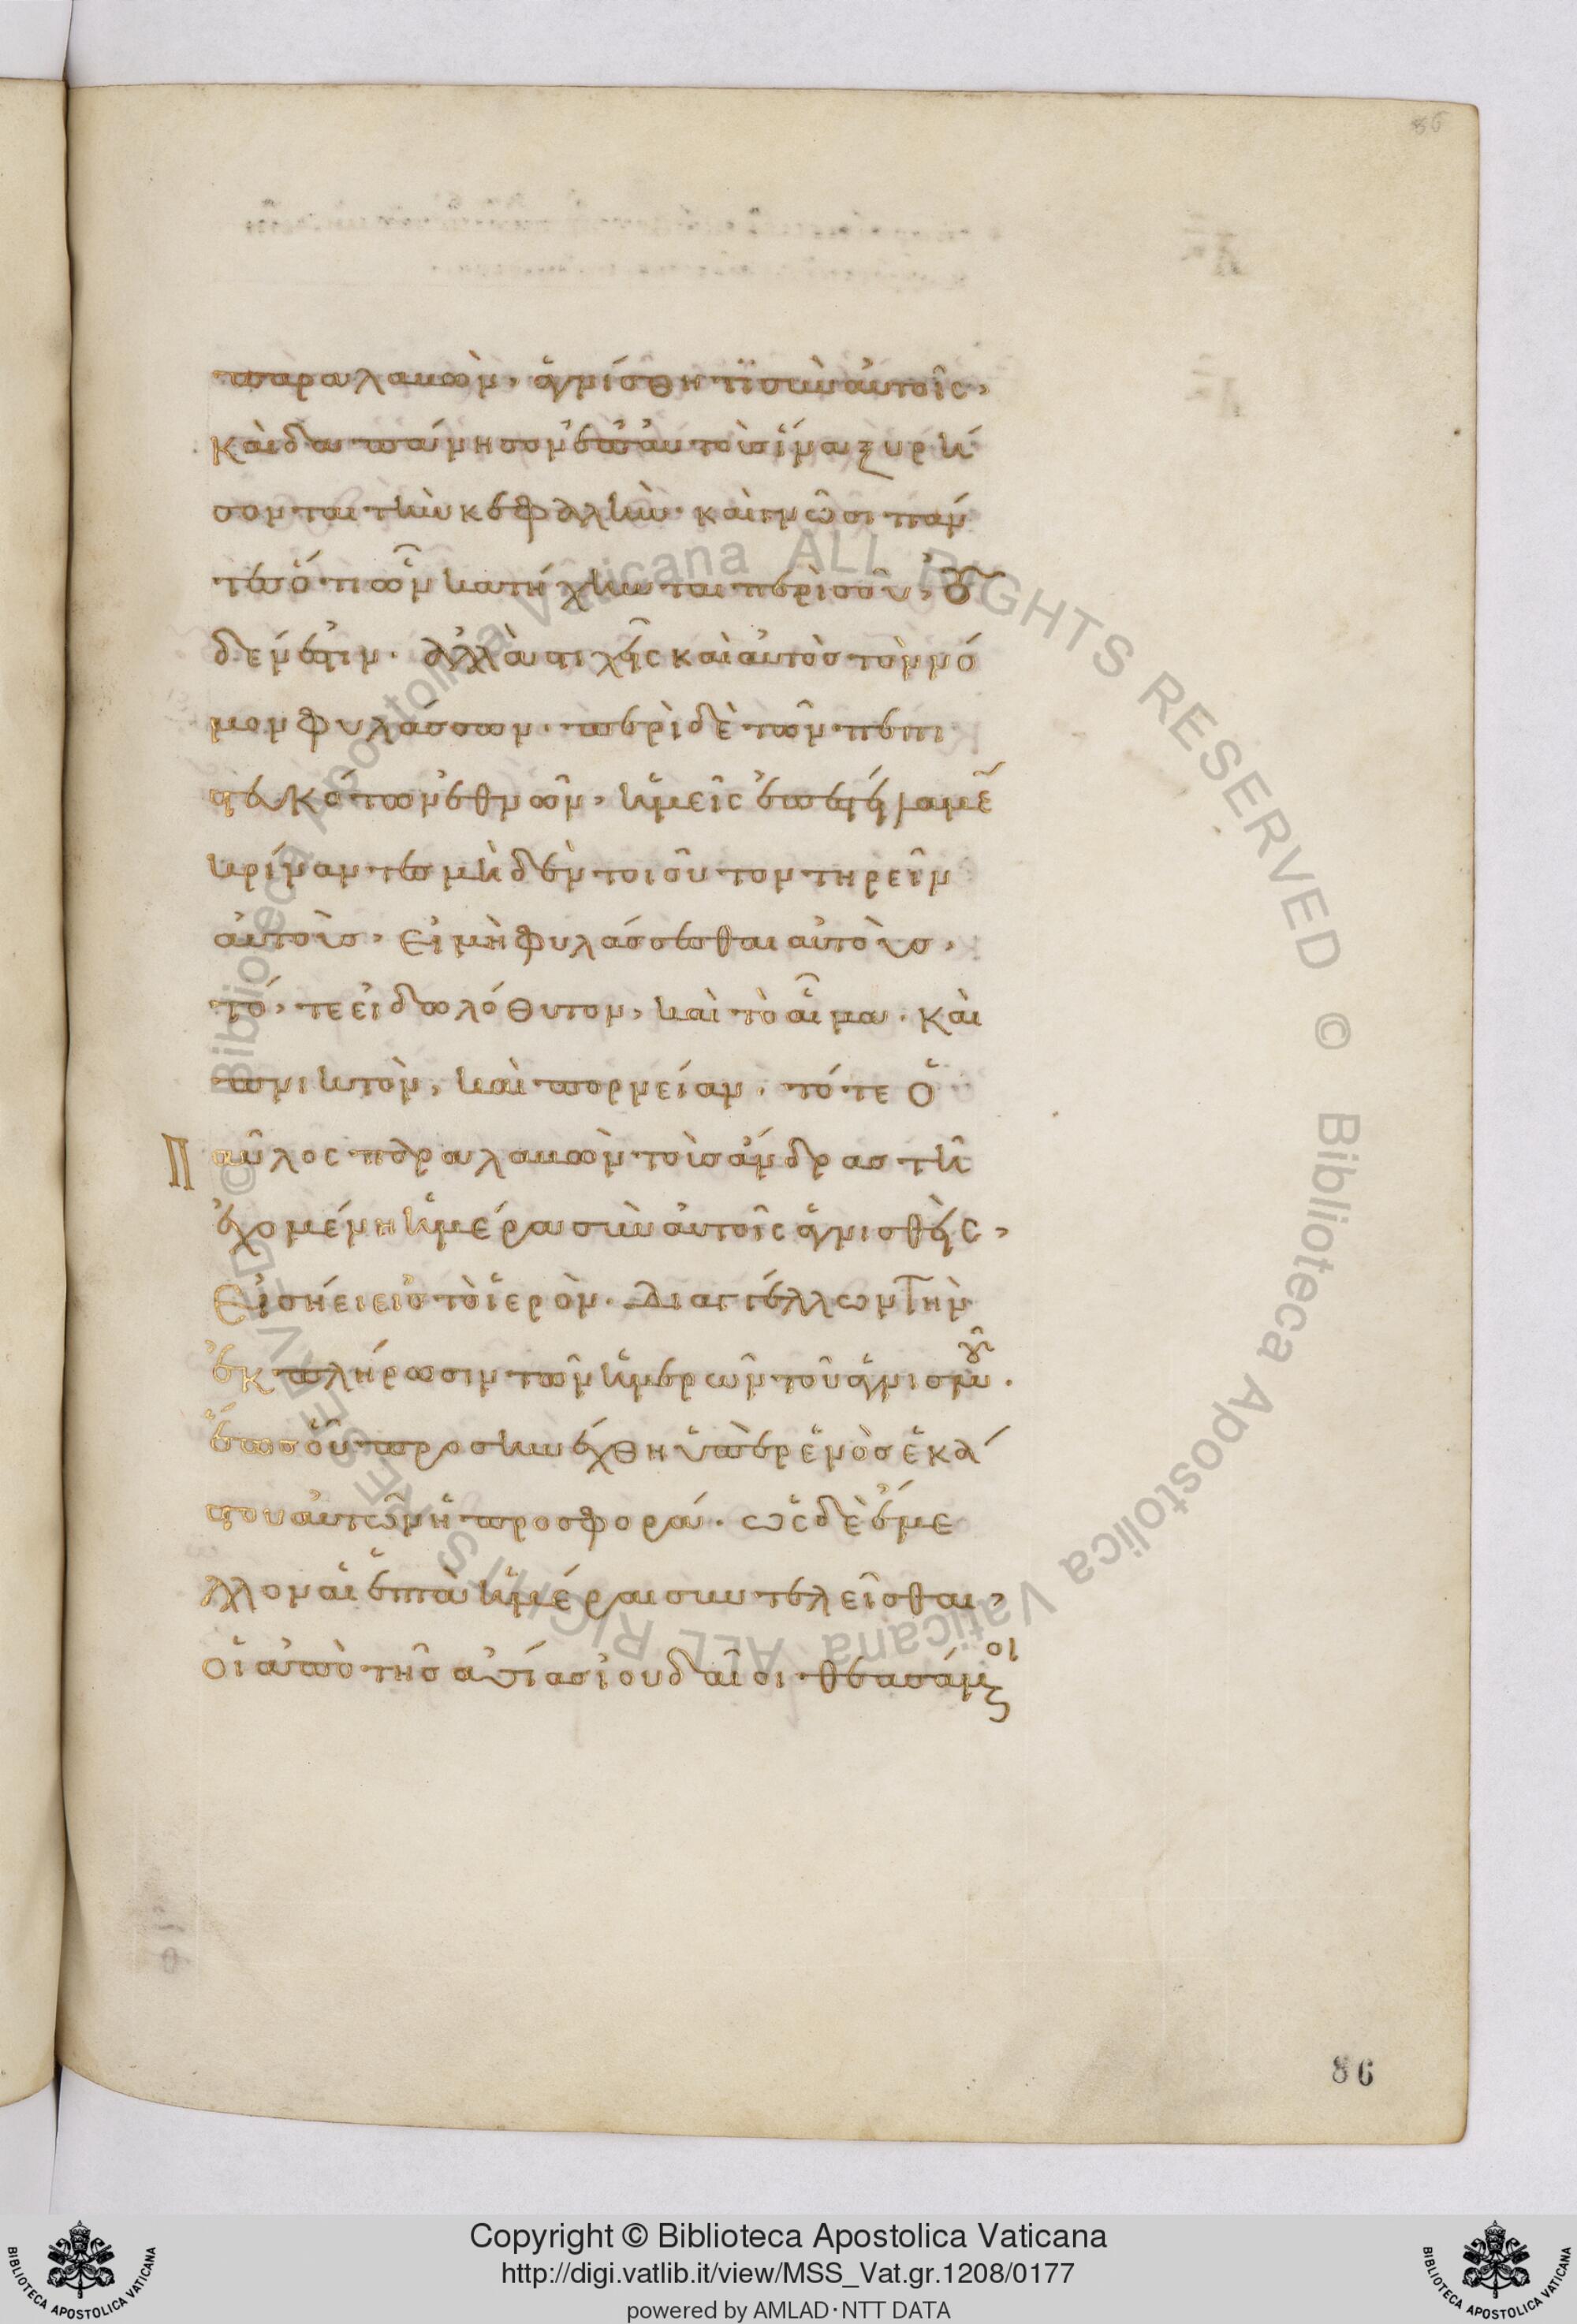 86
παραλαβὼν, ἁγνίσθητϊ σὺν αὐτοῖς,
καὶ δαπάνησον ἐπ' αὐτοὺς ἵνα ξυρή
σονται τὴν κεφαλὴν· καὶ γνῶσι πάν
τες ὅτι ὧν κατήχηνται περὶ σοῦ, οὐ
δέν ἐστιν· ἀλλὰ στιχῇς καὶ αὐτὸς τὸν νό
μον φυλάσσων· περὶ δὲ τῶν πεπι
στευκότων ἐθνῶν, ἡμεῖς ἐπεστείλαμεν
κρίναντες μηδὲν τοιοῦτον τηρεῖν
αὐτοὺς, εἰ μὴ φυλάσσεσθαι αὐτοὺς,
τό, τε εἰδωλόθυτον, καὶ τὸ αἷμα· καὶ
πνικτὸν, καὶ πορνείαν· τότε ὁ
Παῦλος παραλαβὼν τοὺς ἄνδρας τῇ
ἐχομένη ἡμέρα σὺν αὐτοῖς ἁγνισθεὶς,
εἰσήει εἰς τὸ ἱερὸν· διαγγέλλων τὴν
ἐκπλήρωσιν τῶν ἡμερῶν τοῦ ἁγνισμοῦ·
ἕως οὗ προσηνέχθη ὑπὲρ ἑνὸς ἑκά
στου αὐτῶν ἡ προσφορά· ὡς δὲ ἔμε
λλον αἱ ἑπτὰ ἡμέραι συντελεῖσθαι,
οἱ ἀπὸ τῆς ἀσίας ἰουδαῖοι θεασάμενοι
86
Biblioteca Apostolica Vaticana ALL RIGHTS RESERVED © Biblioteca Apostolica Vaticana ALL RIGHTS RESERVED ©
Copyright © Biblioteca Apostolica Vaticana
http://digi.vatlib.it/view/MSS_Vat.gr.1208/0177
powered by AMLAD·NTT DATA
BIBLIOTECA APOSTOLICA VATICANA
BIBLIOTECA APOSTOLICA VATICANA